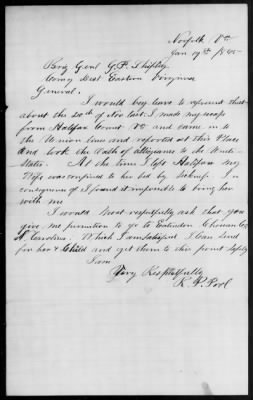 Norfolk Va
Jan 19th 1865
Brig Genl G. F. Shepley
Comg Dist Eastern Virginia
General,
I would beg leave to represent that
about the 20th of Nov last I made my escape
from Halifax Count Va and came in to
the Union lines and reported at this Place
and took the oath of Allegiance to the United
States. At the time I left Halifax my
Wife was confined to her bed by sickness. In
consequence of I found it impossible to bring her
with me
I would Most respectfully ask that you
give me permission to go to Edenton Chowan Co
N. Carolina. Which I am satisfied I can send
for her & Child and get them to this point safely
I am
Very Respectfully
R. P. Pool